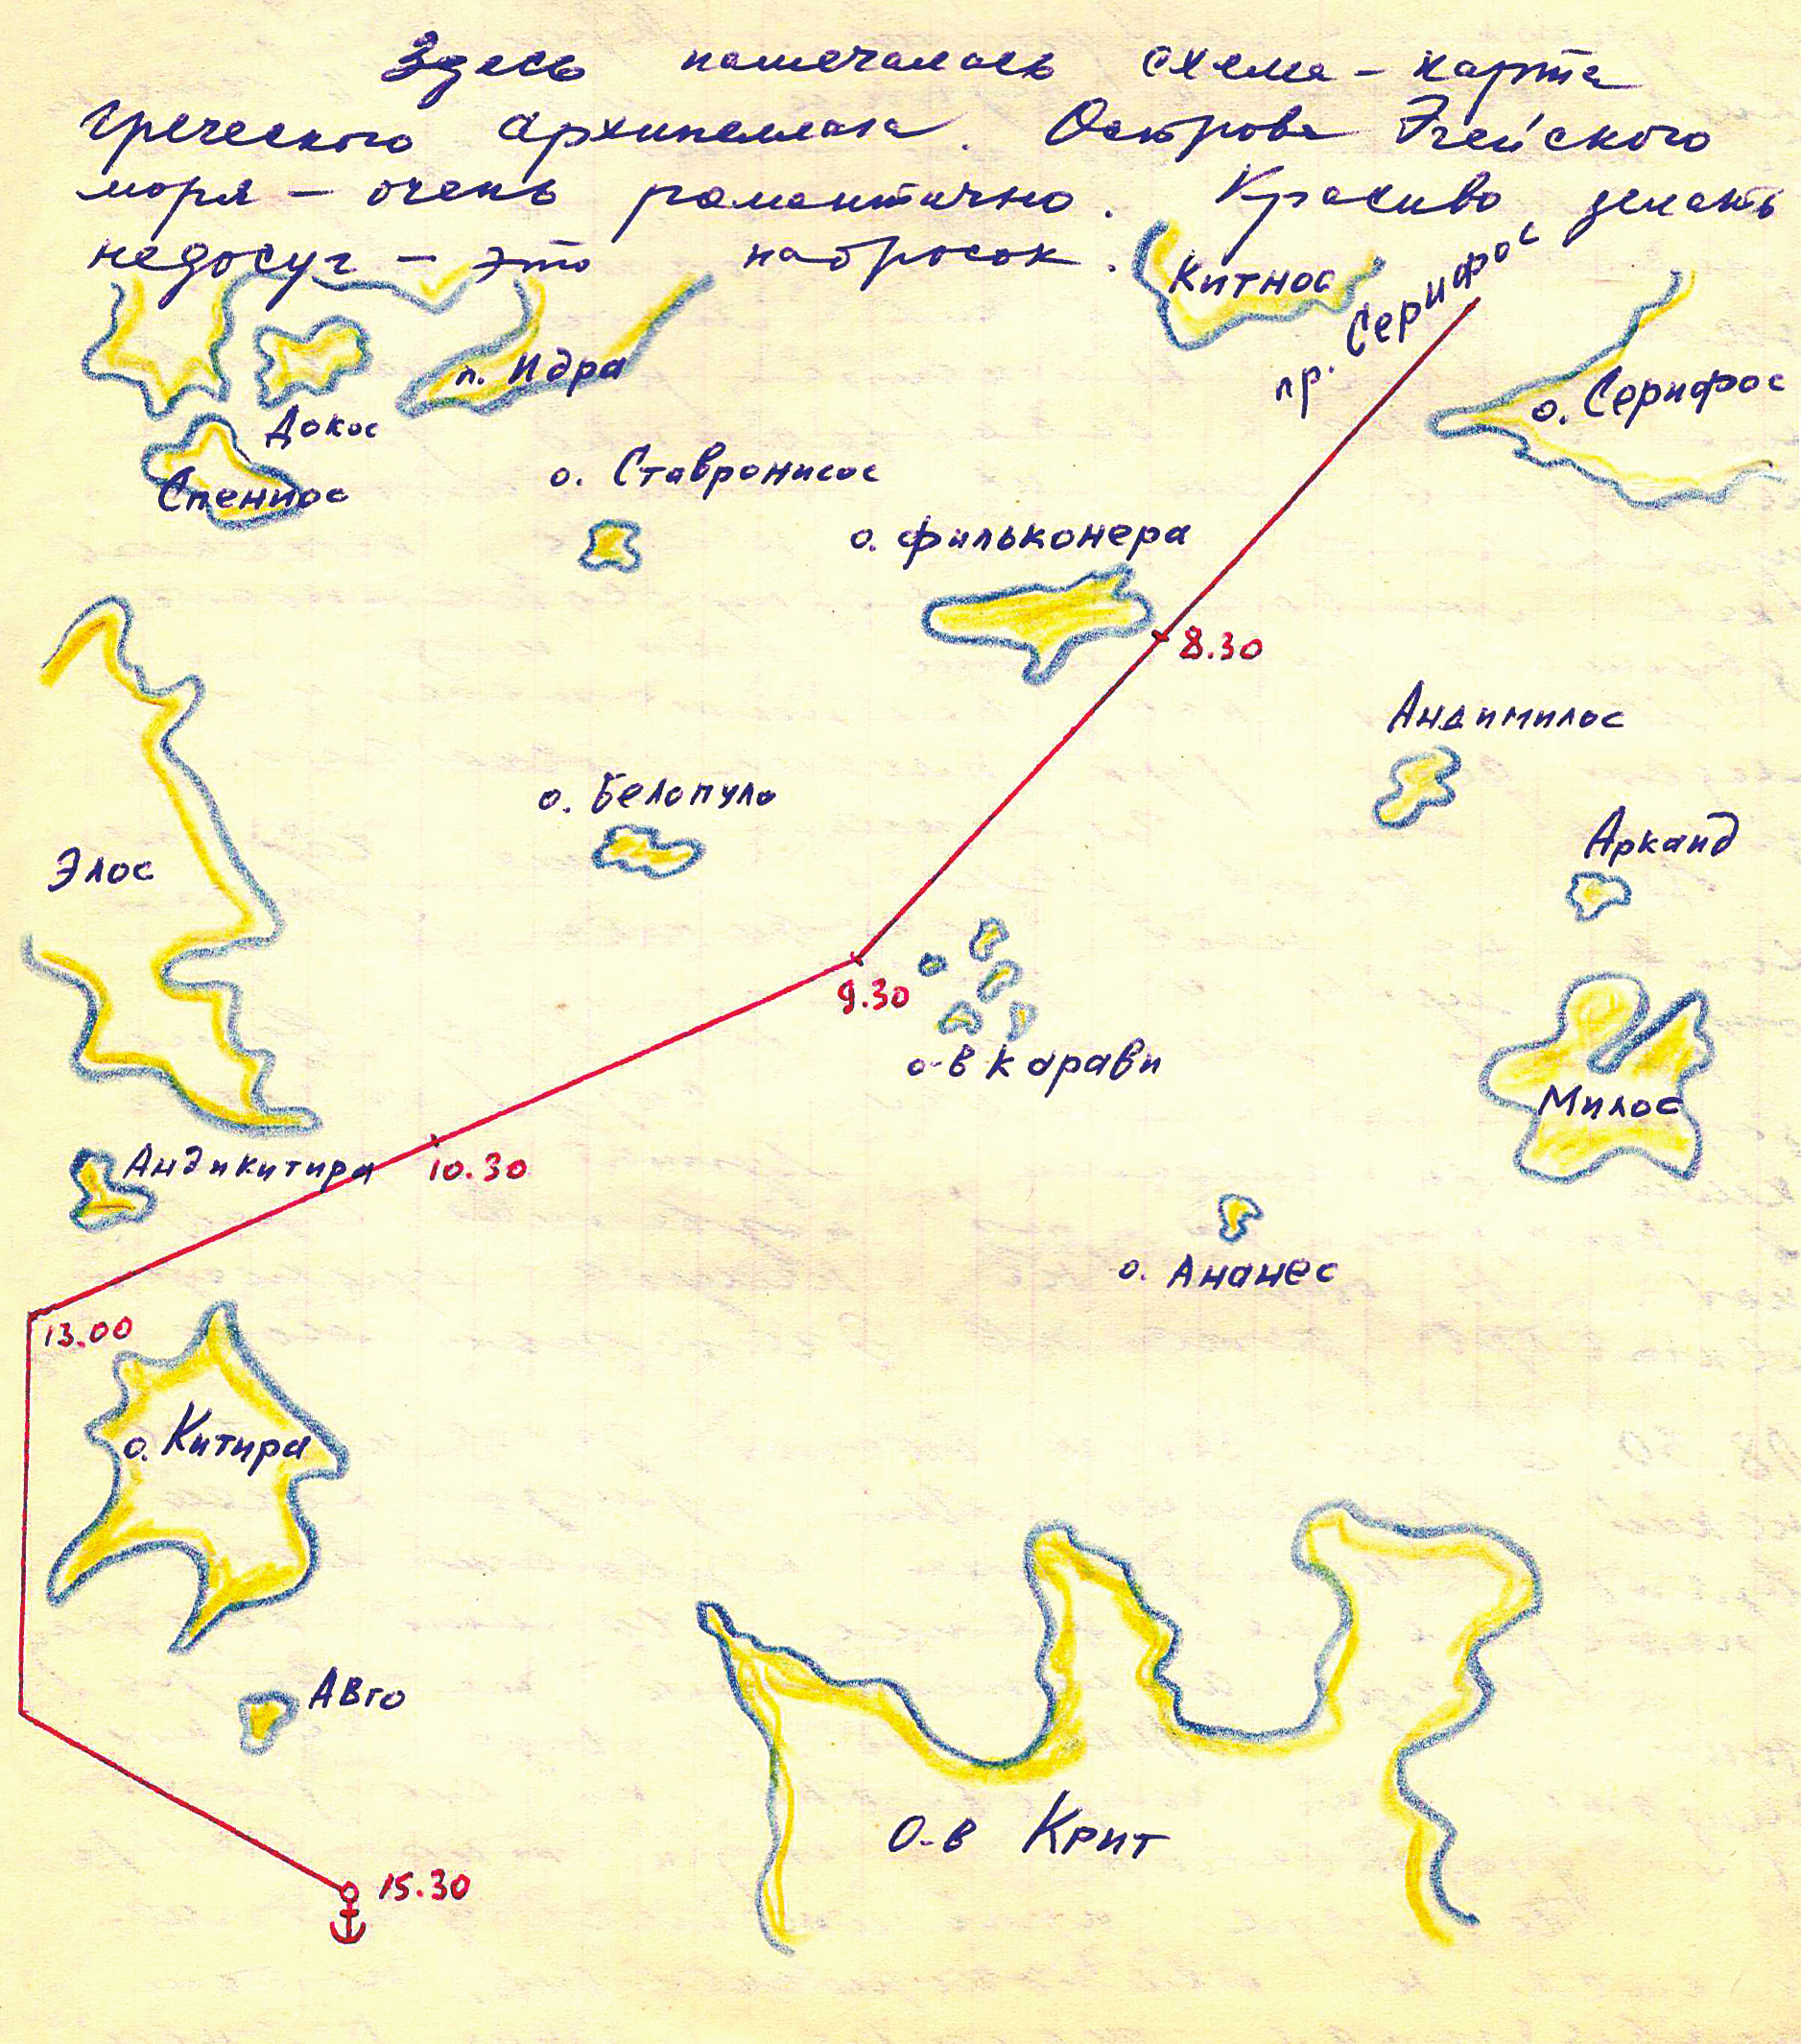 Здесь намечалась схема-карта
Греческого архипеллага. Острова Эгейского
моря - очень романтично. Красиво делать
недосуг - это набросок.
Китнос
пр. Серифос
о. Серифос
п. Идра
Докос
Спенпос
о. Ставронисос
о. Фильконера
8.30
Андимилос
о. Белопуло
Аркаид
Элос
9.30
о-в Карави
Милос
Андикитира
10.30
о. Ананес
13.00
о. Китира
Авго
О-в Крит
15.30